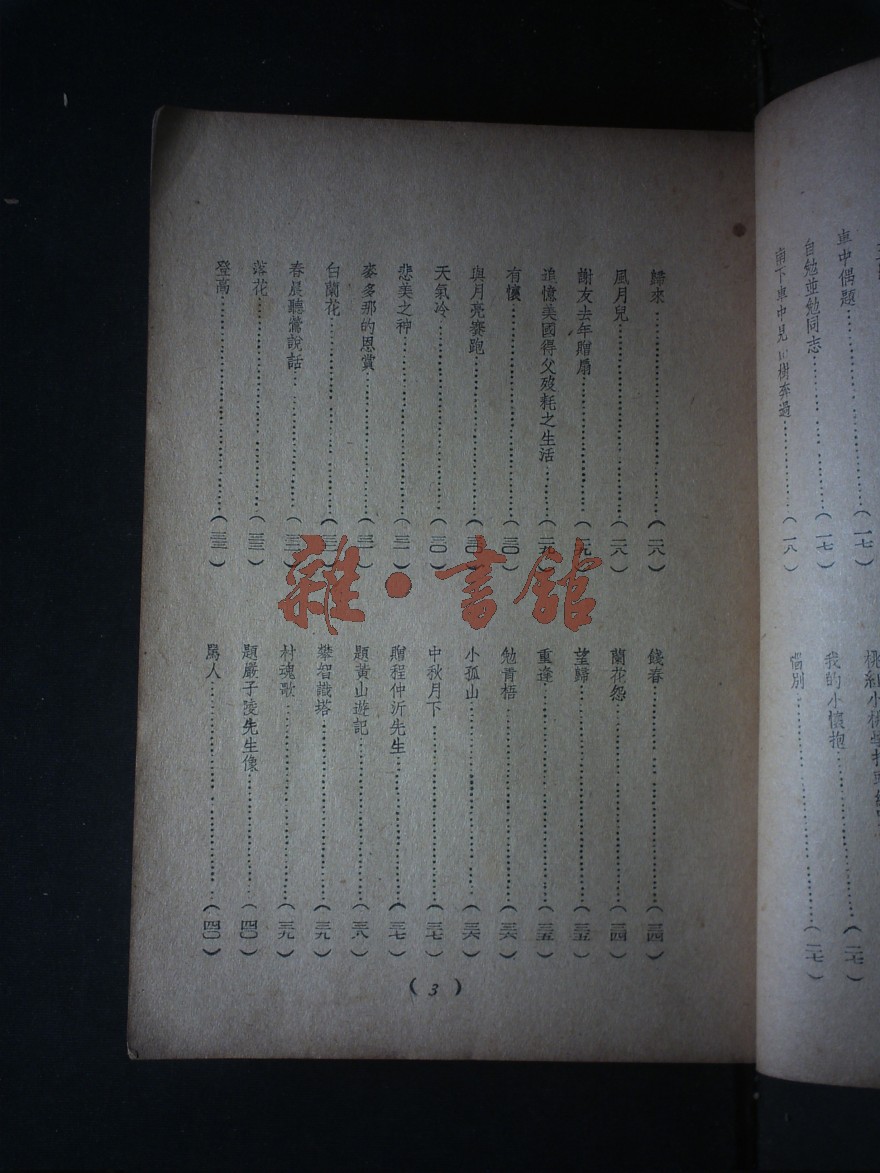 車中偶題……(一七)
自勉並勉同志……(一七)
南下車中見山樹奔過……(一八)
我的小懷抱……(二七)
惜別……(二七)
歸來……(二八)
風月兒……(二八)
謝友去年贈扇……(二九)
追憶美國得父歿耗之生活……(二九)
有懷……(三〇)
與月亮賽跑……(三〇)
天氣冷……(三〇)
悲美之神……(三一)
麥多那的恩賞……(三一)
白蘭花……
春晨聽鶯說話……
落花……(三三)
登高……(三三)
餞春……(三四)
蘭花怨……(三四)
望歸……(三五)
重逢……(三五)
勉青梧……(三六)
小孤山……(三六)
中秋月下……(三七)
贈程仲沂先生……(三七)
題黃山遊記……(三八)
攀智識塔……(三九)
村魂歌……(三九)
題嚴子陵先生像……(四〇)
罵人……(四〇)
(3)
雜·書館